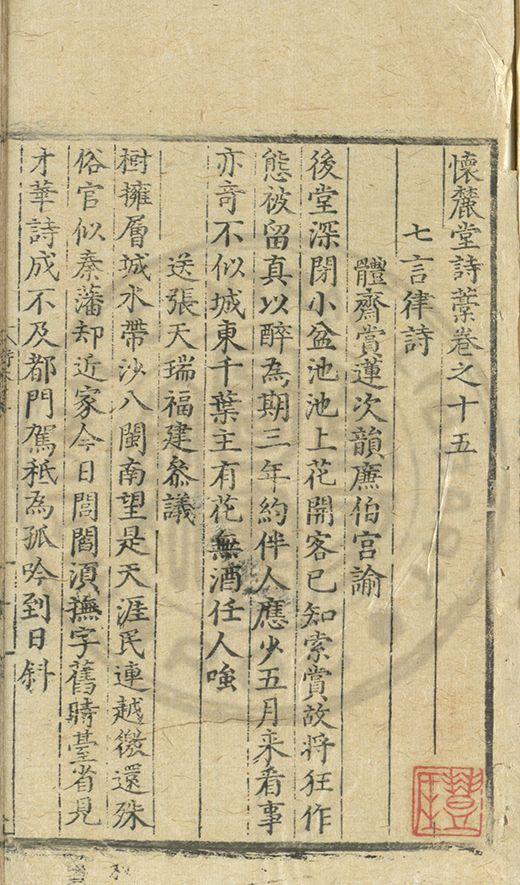 懷麓堂詩藁卷之十五
七言律詩
體齋賞蓮次韻廉伯宫諭
後堂深閉小盆池池上花開客已知索賞故將狂作
態被留真以醉為期三年約伴人應少五月来看事
亦竒不似城東千葉主有花無酒任人嗤
送張天瑞福建叅議
樹擁層城水帶沙八閩南望是天涯民連越徼還殊
俗官似秦藩却近家今日閭閻湏撫字舊時臺省見
才華詩成不及都門駕秖為孤吟到日斜